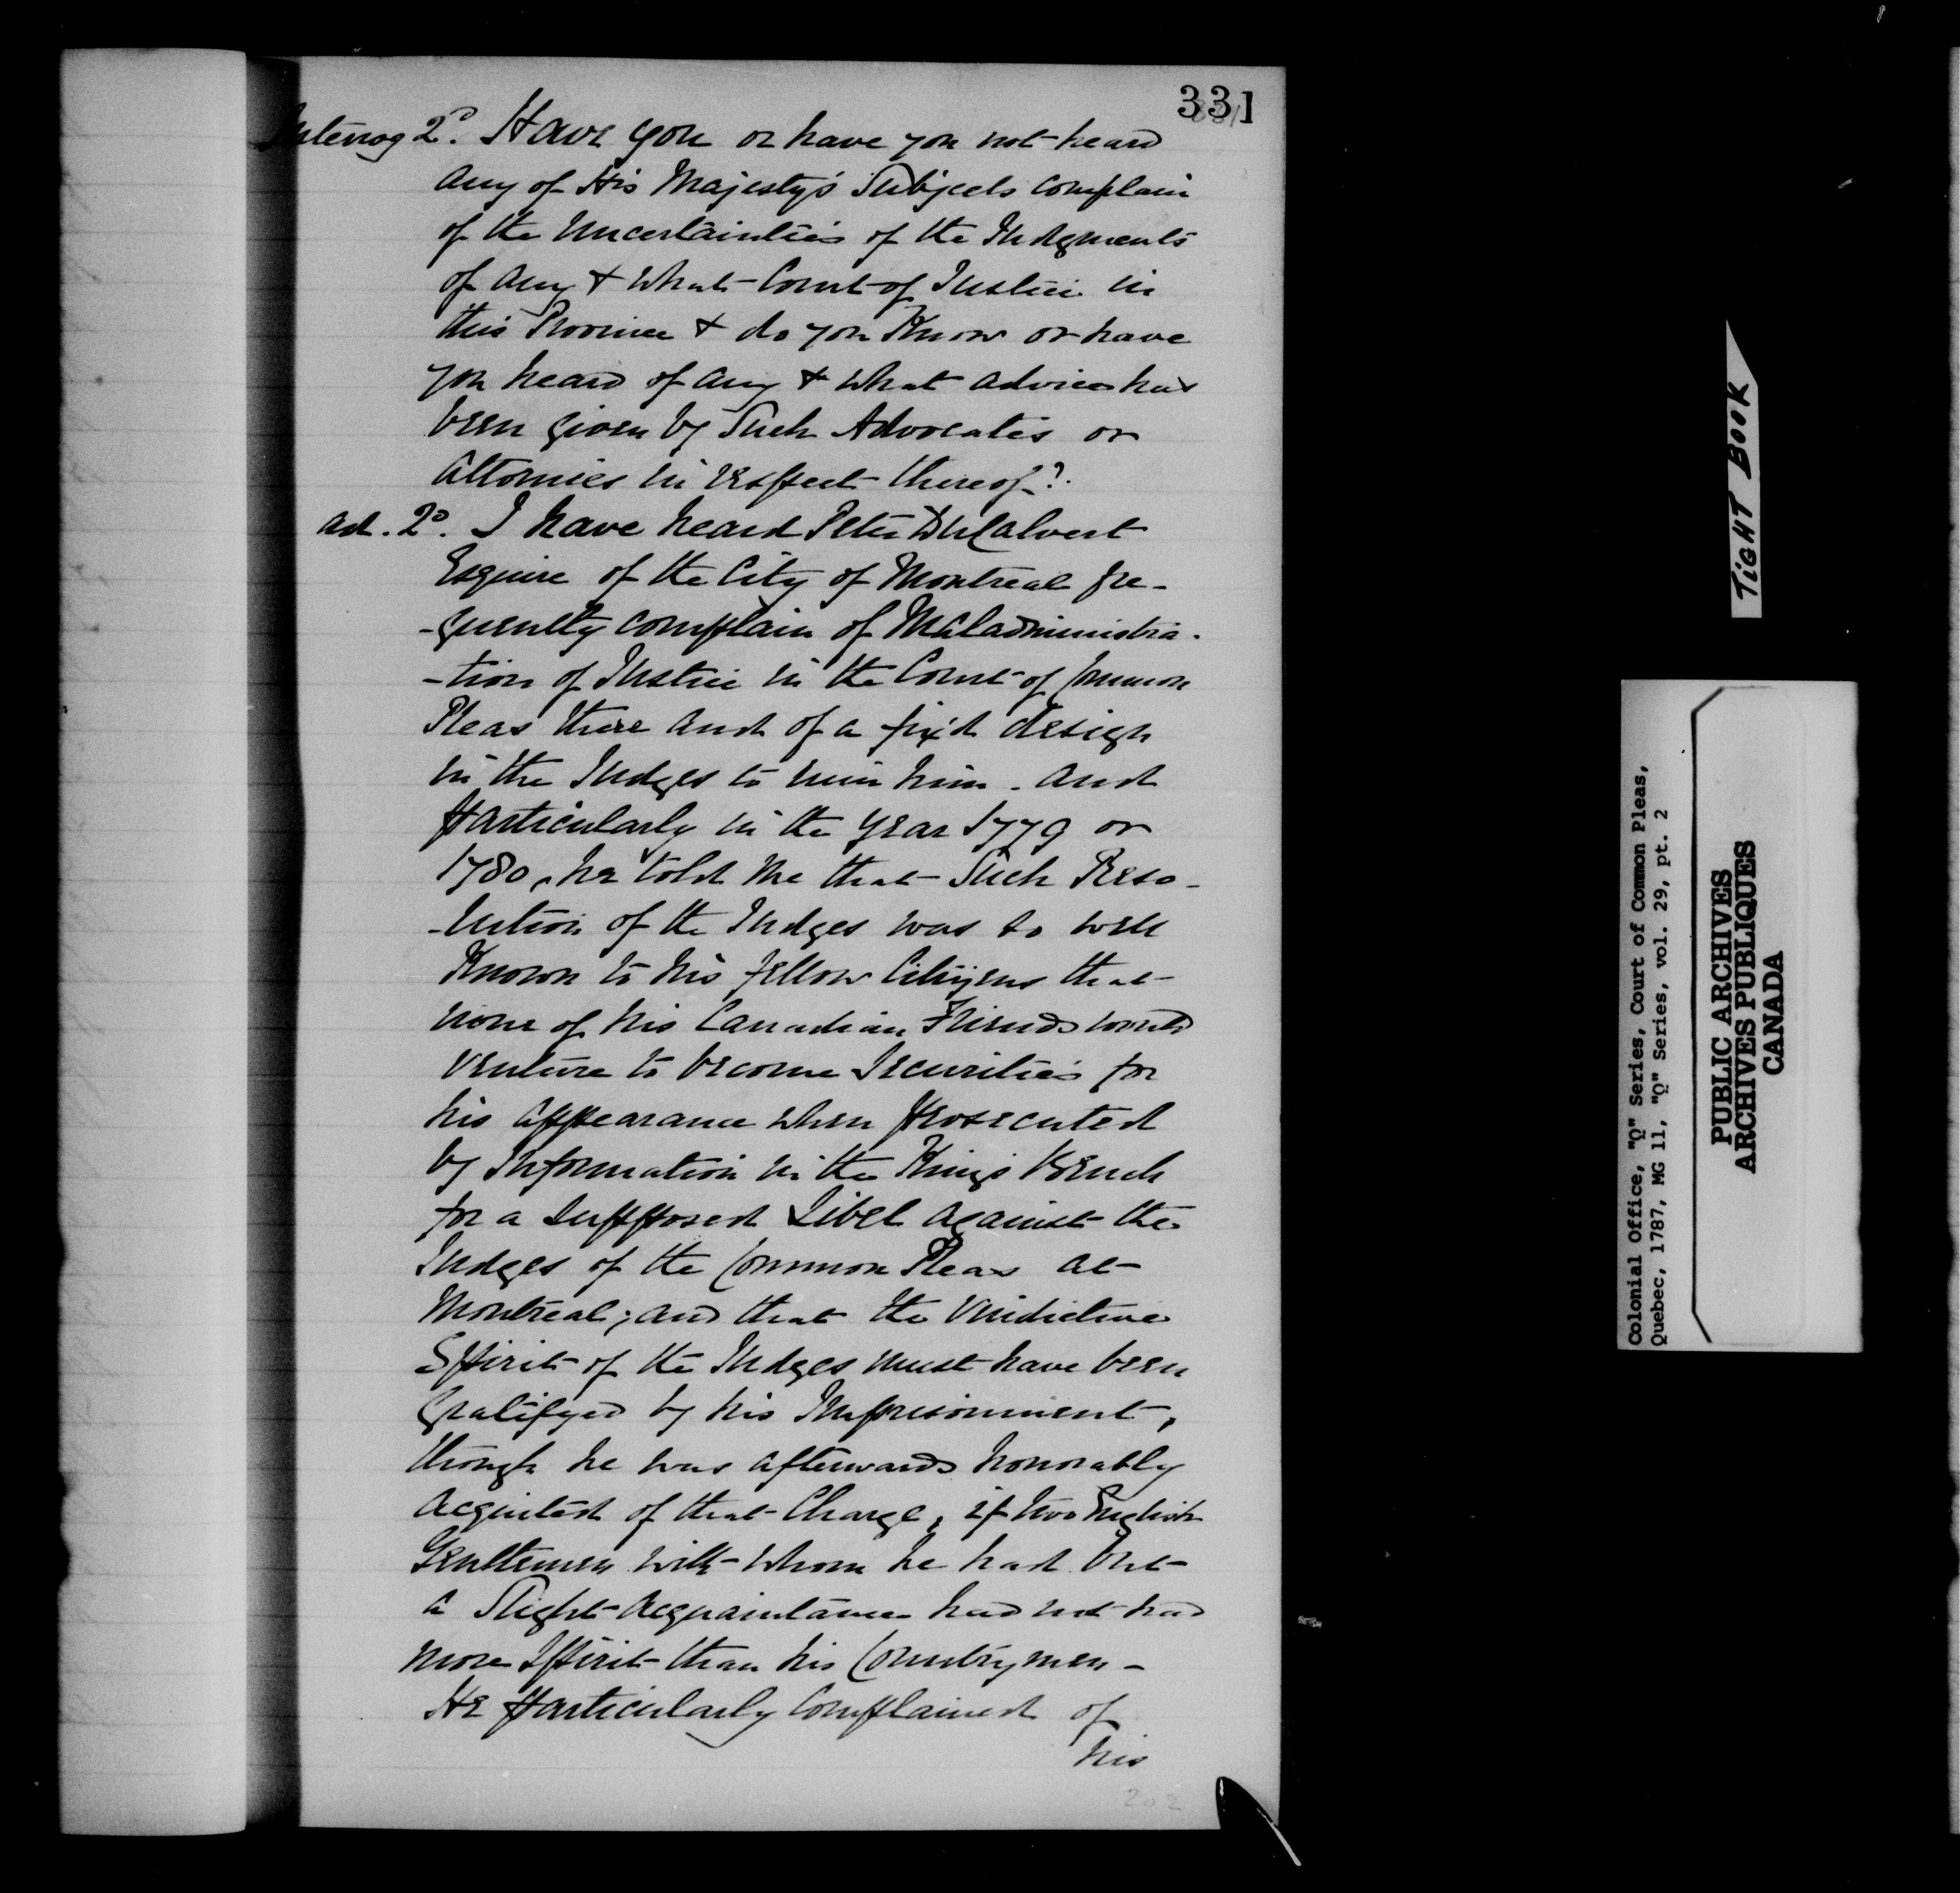 331
Interrog 2º. Have you or have you not heard
any of His Majesty's Subjects complain
of the Uncertainties of the Judgments
of any & what Court of Justice in
this Province & do you Know or have
you heard of any & what advice has
been given by Such Advocates or
Attornies in respect thereof?
ad. 2º. I have heard Peter DuCalvert
Esquire of the City of Montreal fre-
-quently complain of Maladministra-
-tion of Justice in the Court of Common
Pleas there and of a fix'd design
in the Judges to ruin him. and
particularly in the year 1779 or
1780, he told me that Such Reso-
-lution of the Judges was so well
Known to his fellow Citizens that
none of his Canadian Friends would
venture to become Securities for
his appearance when prosecuted
by Information in the Kings Bench
for a supposed Libel against the
Judges of the Common Pleas at
Montreal; and that the Vindictive
Spirit of the Judges must have been
gratifyed by his Imprisonment,
though he was afterwards honorably
acquited of that Charge, if two English
Gentlemen with whom he had but
a Slight acquaintance had not had
more Spirit than his Countrymen -
He particularly complained of
his
202
TIGHT BOOK
Colonial Office, "Q" Series, Court of Common Pleas,
Quebec, 1787, MG 11, "Q" Series, vol. 29, pt. 2
PUBLIC ARCHIVES
ARCHIVES PUBLIQUES
CANADA